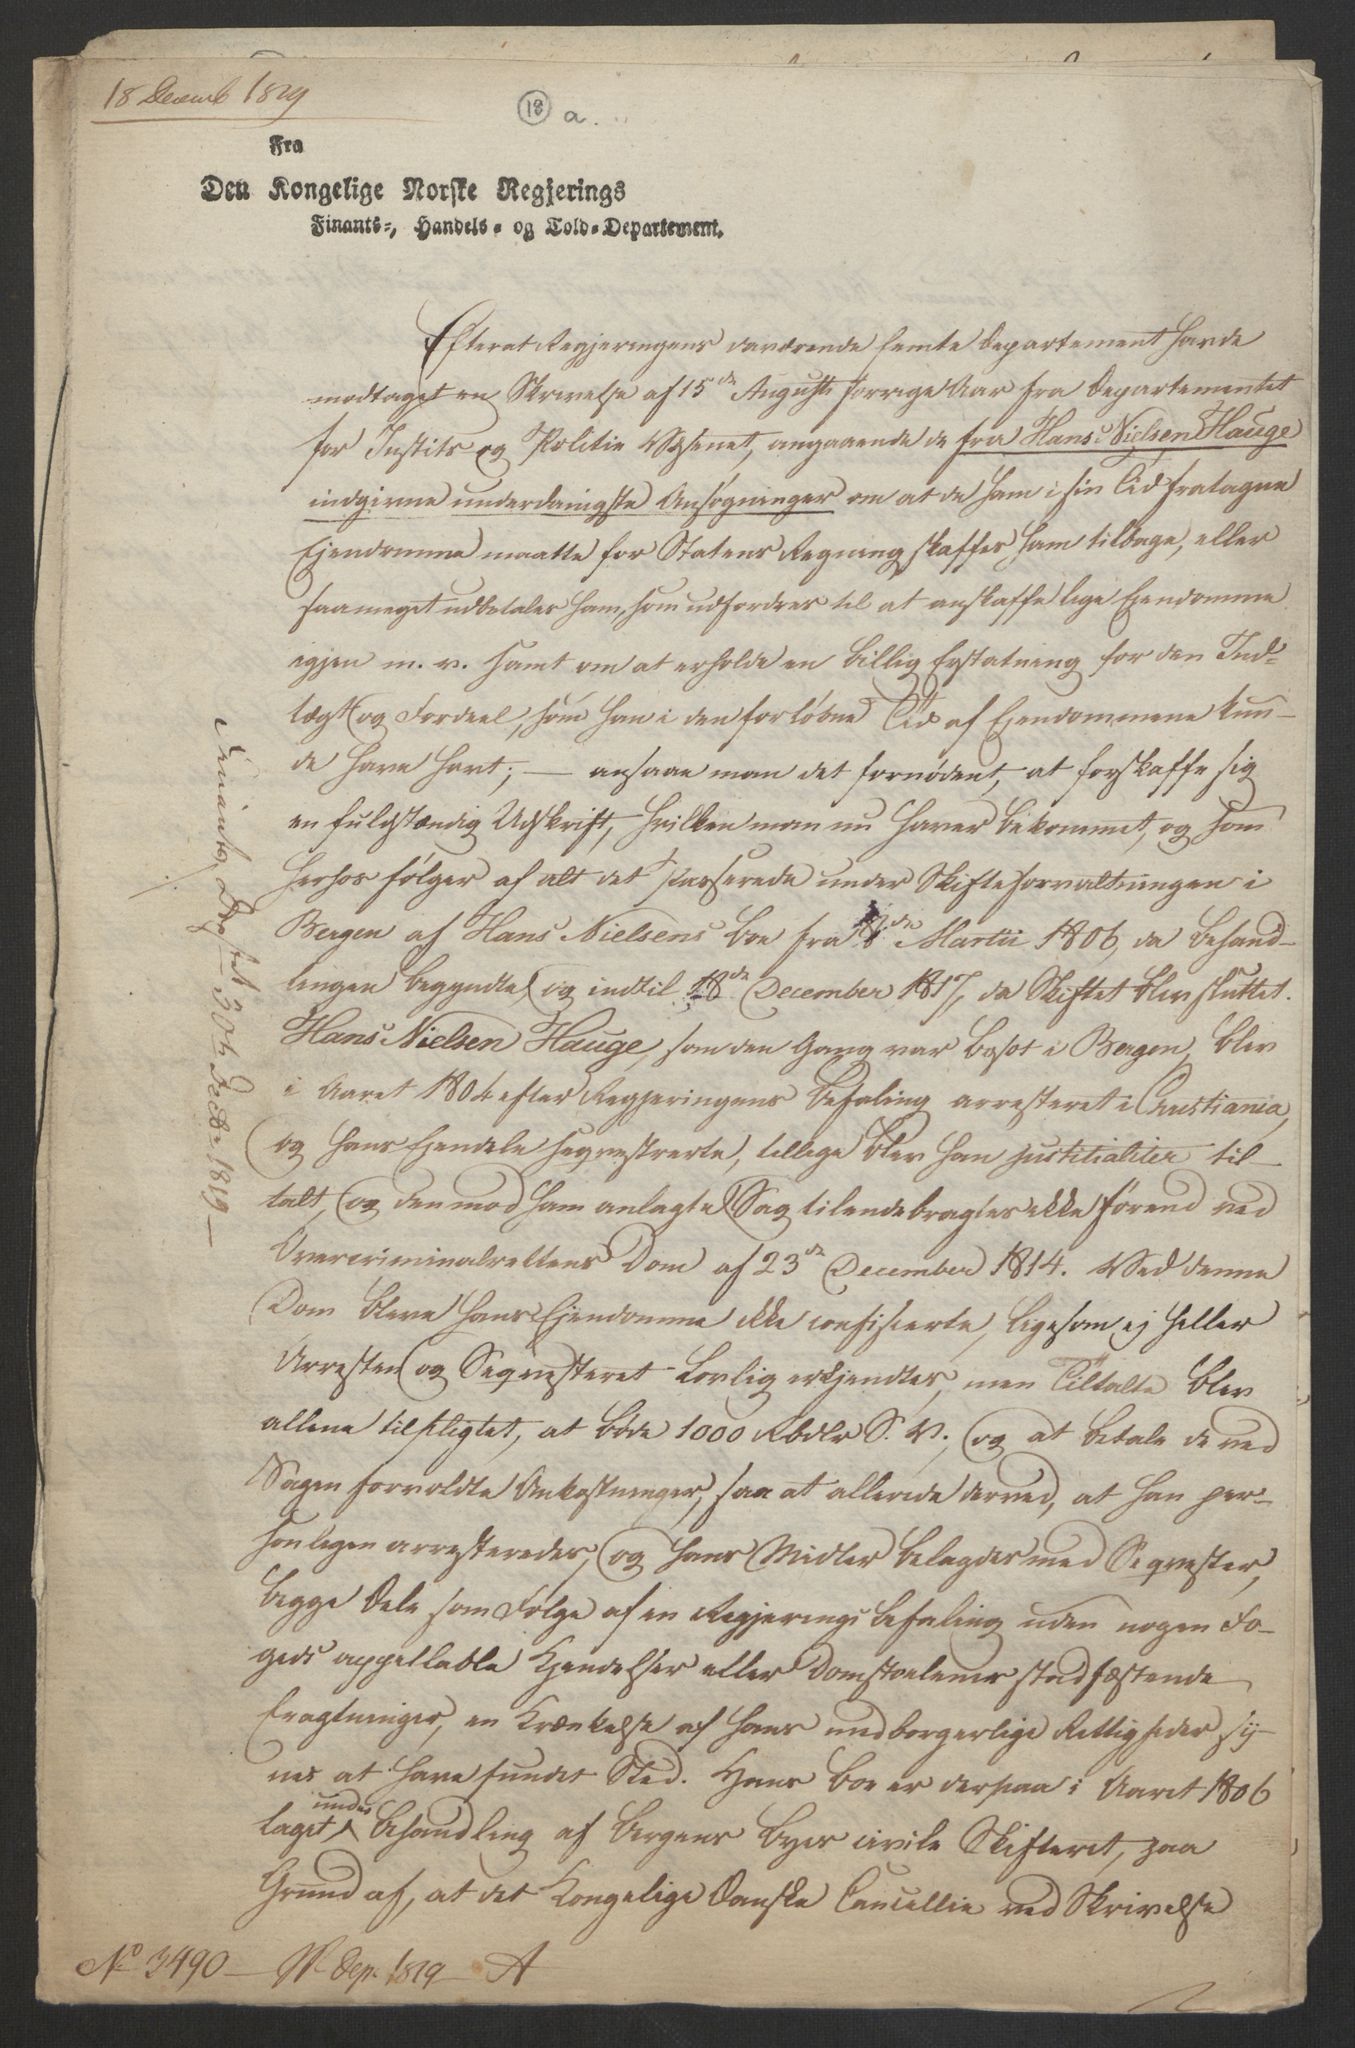 18 Decemb 1819
18 a.
Fra
Den Kongelige Norske Regjerings
Finants-, Handels- og Told-Departement.
Efterat Regjeringens daværende femte Departement havde
modtaget en Skrivelse af 15de Augusti forrige Aar fra Departementet
for Justits og Politie Wæsenet, angaaende de fra Hans Nielsen Hauge
indgivne underdanigste Ansøgninger om at de ham i sin Tid fratagne
Ejendomme maatte for Statens Regning skaffes ham tilbage, eller
saameget udbetales ham, som udfordres til at anskaffe lige Ejendomme
igjen m. v. samt om at erholde en billig Erstatning for den Ind-
tægt og Fordeel, som han i den forløbne Tid af Ejendommene kun-
de have havt; — ansaae man det fornødent, at forskaffe sig
en fuldstændig Udskrift, hvilken man nu haver bekommet, og som
herhos følger af alt det passerede under Skifteforvaltningen i
Bergen af Hans Nielsens Boe fra 8de Martii 1806, da Behand-
lingen begyndte og indtil 18de December 1817, da Skiftet blev sluttet.
Hans Nielsen Hauge, som den Gang var bosat i Bergen, blev
i Aaret 1804 efter Regjeringens Befaling arresteret i Christiania,
og hans Ejendele seqvestrerte, tillige blev han justitialiter til-
talt, og den mod ham anlagte Sag tilendebragtes ikke førend ved
Overcriminalrettens Dom af 23de December 1814. Wed denne
Dom bleve hans Ejendomme ikke confiscerte, ligesom ej heller
Arresten og Seqvesteret lovlig erkjendtes, men Tiltalte blev
allene tilpligtet, at bøde 1000 Rbdlr S. V., og at betale de ved
Sagen forvoldte Omkostninger, saa at allerede derved, at han per-
sonligen arresteredes, og hans Midler belagdes med Seqvester,
begge Dele som Følge af en Regjerings Befaling uden nogen Fo-
geds appellable Kjendelser eller Domstolenes stadfæstende
Eragtninger, en Krænkelse af hans medborgerlige Rettigheder sy-
nes at have fundet Sted. Hans Boe er derpaa i Aaret 1806
taget under Behandling af Bergens Byes civile Skifteret, paa
Grund af, at det Kongelige Danske Cancellie ved Skrivelse
Finants, Dep.tet 30te Decbr 1819
No 3490 — Dep. 1819 — A